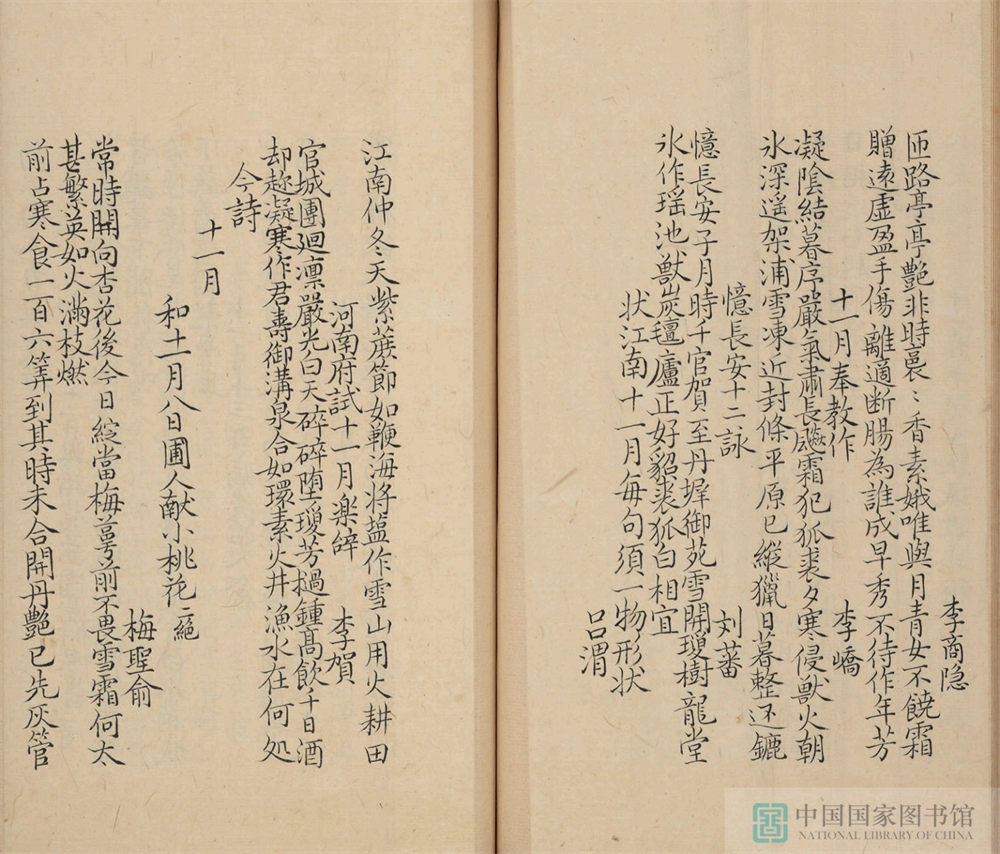 李商隐
匝路亭亭艷非時裛〻香素娥唯與月青女不饒霜
贈遠虛盈手傷離適断腸為誰成早秀不待作年芳
十一月奉教作 李嶠
凝陰結暮序嚴氣肅長飈霜犯狐裘夕寒侵獸火朝
氷深遥架浦雪凍近封條平原已縱獵日暮整还鑣
憶長安十二詠 刘蕃
憶長安子月時千官賀至丹墀御苑雪開瓊樹龍堂
氷作瑶池獣炭氊廬正好貂裘狐白相宜
状江南十一月每句須一物形状 吕渭
江南仲冬天紫蔗節如鞭海将塩作雪山用火耕田
河南府試十一月楽辝 李賀
官城團廻凛嚴光白天碎碎堕瓊芳撾鍾高飲千日酒
却趂凝寒作君壽御溝泉合如環素火井漁水在何処
今詩
十一月
和十一月八日圃人献小桃花二絕
梅聖俞
常時開向杏花後今日綻當梅萼前不畏雪霜何太
甚繁英如火滿枝燃
前占寒食一百六筭到其時未合開丹艷已先灰管
中国国家图书馆
NATIONAL LIBRARY OF CHINA